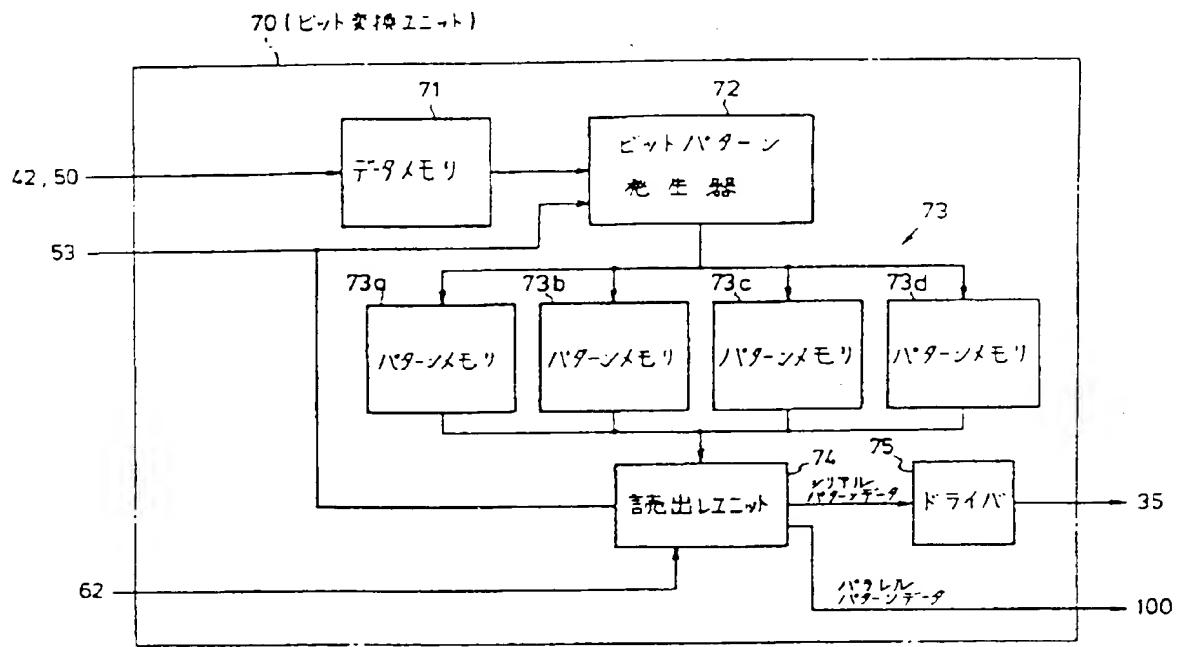 70(ビット変換ユニット)
71
72
データメモリ
ビットパターン
発生器
42,50
53
73
73a
73b
73c
73d
パターンメモリ
パターンメモリ
パターンメモリ
パターンメモリ
74
75
読出しユニット
シリアル
パターンデータ
ドライバ
35
62
パラレル
パターンデータ
100